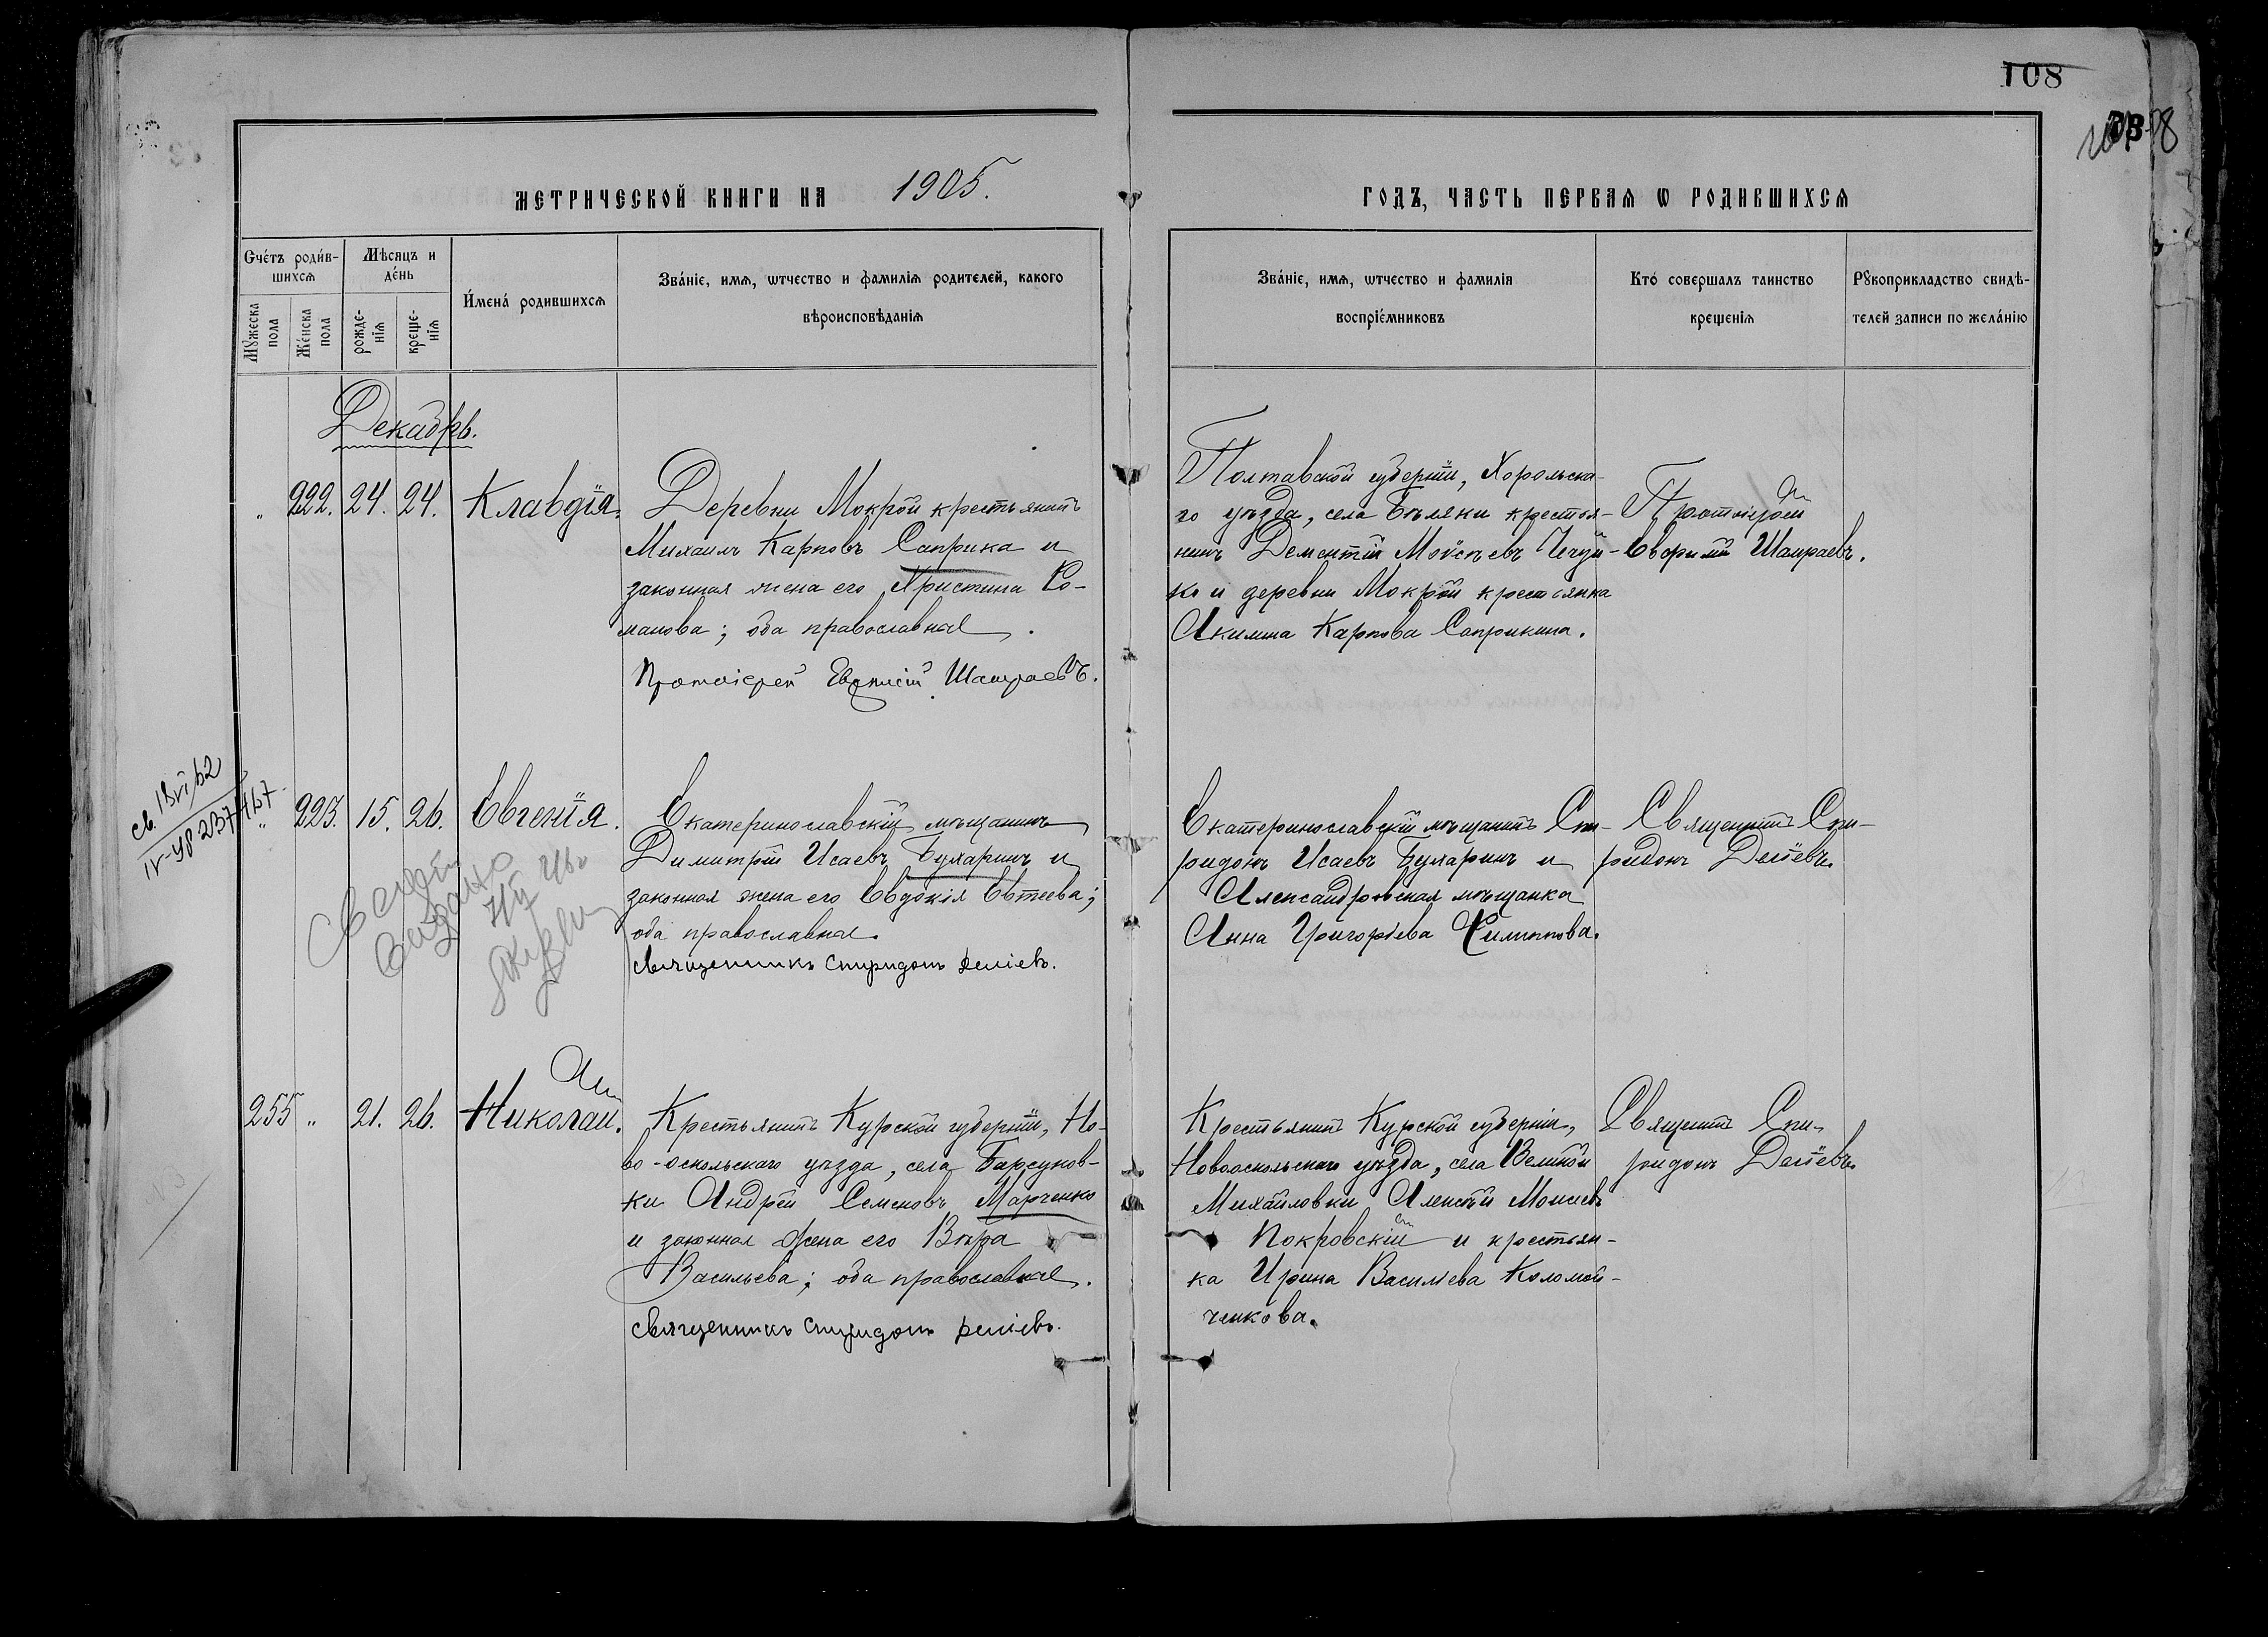 108
МЕТРИЧЕСКОЙ КНИГИ НА 1905.
ГОДЪ, ЧАСТЬ ПЕРВАѦ Ѡ РОДИВШИХСѦ
Счéтъ роди́в-
шихсѧ
Мꙋжеска
пола
Жéнска
пола
Мѣсяцъ и
дéнь
рожде-
нїѧ
креще-
нїѧ
И́мена́ родившихсѧ
Зва́нїе, имѧ, ѿтчество и фамилїѧ родителей, какого
вѣроисповѣданїѧ
Зва́нїе, имѧ, ѿтчество и фамилїѧ
воспрїе́мниковъ
Кто́ совершалъ таинство
крещенїѧ
Рꙋкоприкладство свидѣ-
телей записи по жела́нїю
Декабрь.
„ 222. 24. 24. Клавдія.
Деревни Мокрой крестьянинъ
Михаилъ Карповъ Саприка и
законная жена его Христина Ро-
манова; оба православные.
Протоіерей Евѳимій Шаираевъ.
Полтавской губерніи, Хорольска-
го уѣзда, села Бѣляки крестья-
нинъ Дементій Моѵсеевъ Чегуй-
ко и деревни Мокрой крестьянка
Акилина Карпова Саприкина.
Протоіерей
Евѳимій Шаираевъ.
„ 223. 15. 26. Евгенія.
Екатеринославскій мѣщанинъ
Димитрій Исаевъ Бухаринъ и
законная жена его Евдокія Евтеева;
оба православные.
священникъ Спиридонъ Деліевъ.
Екатеринославскій мѣщанинъ Спи-
ридонъ Исаевъ Бухаринъ и
Александровская мѣщанка
Анна Григоріева Филиппова.
Священникъ Спи-
ридонъ Деліевъ.
255 „ 21. 26. Николай.
Крестьянинъ Курской губерніи, Но-
во-оскольскаго уѣзда, села Барсуков-
ки Андрей Семеновъ Марченко
и законная жена его Вѣра
Васильева; оба православные.
священникъ Спиридонъ Деліевъ.
Крестьянинъ Курской губерніи,
Новооскольскаго уѣзда, села Великой
Михайловки Алексѣй Моисеевъ
Покровскій и крестьян-
ка Ирина Василіева Коломой-
ченкова.
Священникъ Спи-
ридонъ Деліевъ.